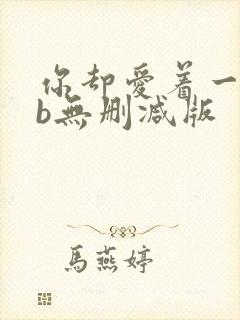 你却愛着一
b無删减版
馬燕婷